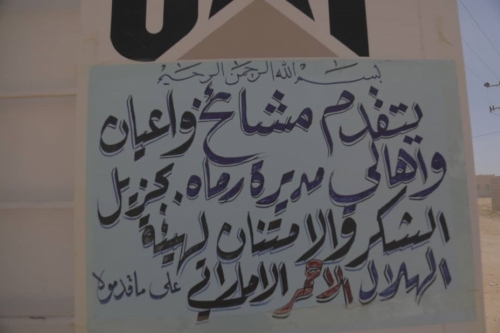 بسم الله الرحمن الرحيم
يتقدم مشائخ واعيان
واهالي مديرة رماه بجزيل
الشكر والامتنان لهيئة
الهلال الاحمر الاماراتي على ماقدموه